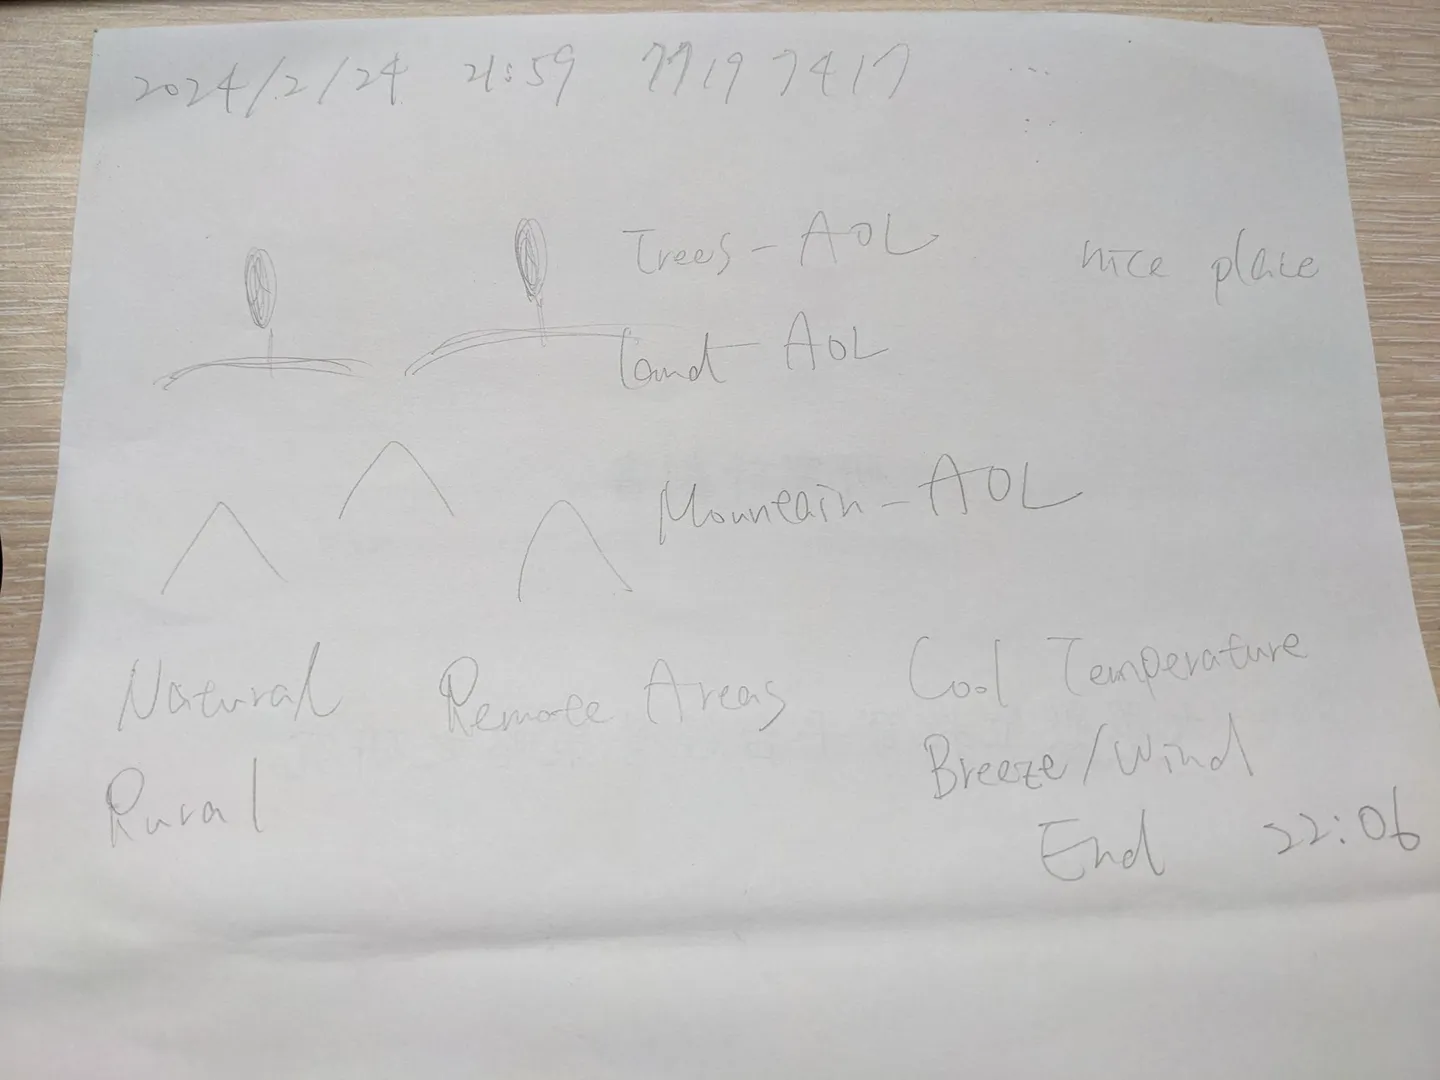 2024/2/24 21:59 7719 7417
Trees - AOL nice place
land - AOL
Mountain - AOL
Natural Remote Areas Cool Temperature
Rural Breeze/Wind
End 22:06